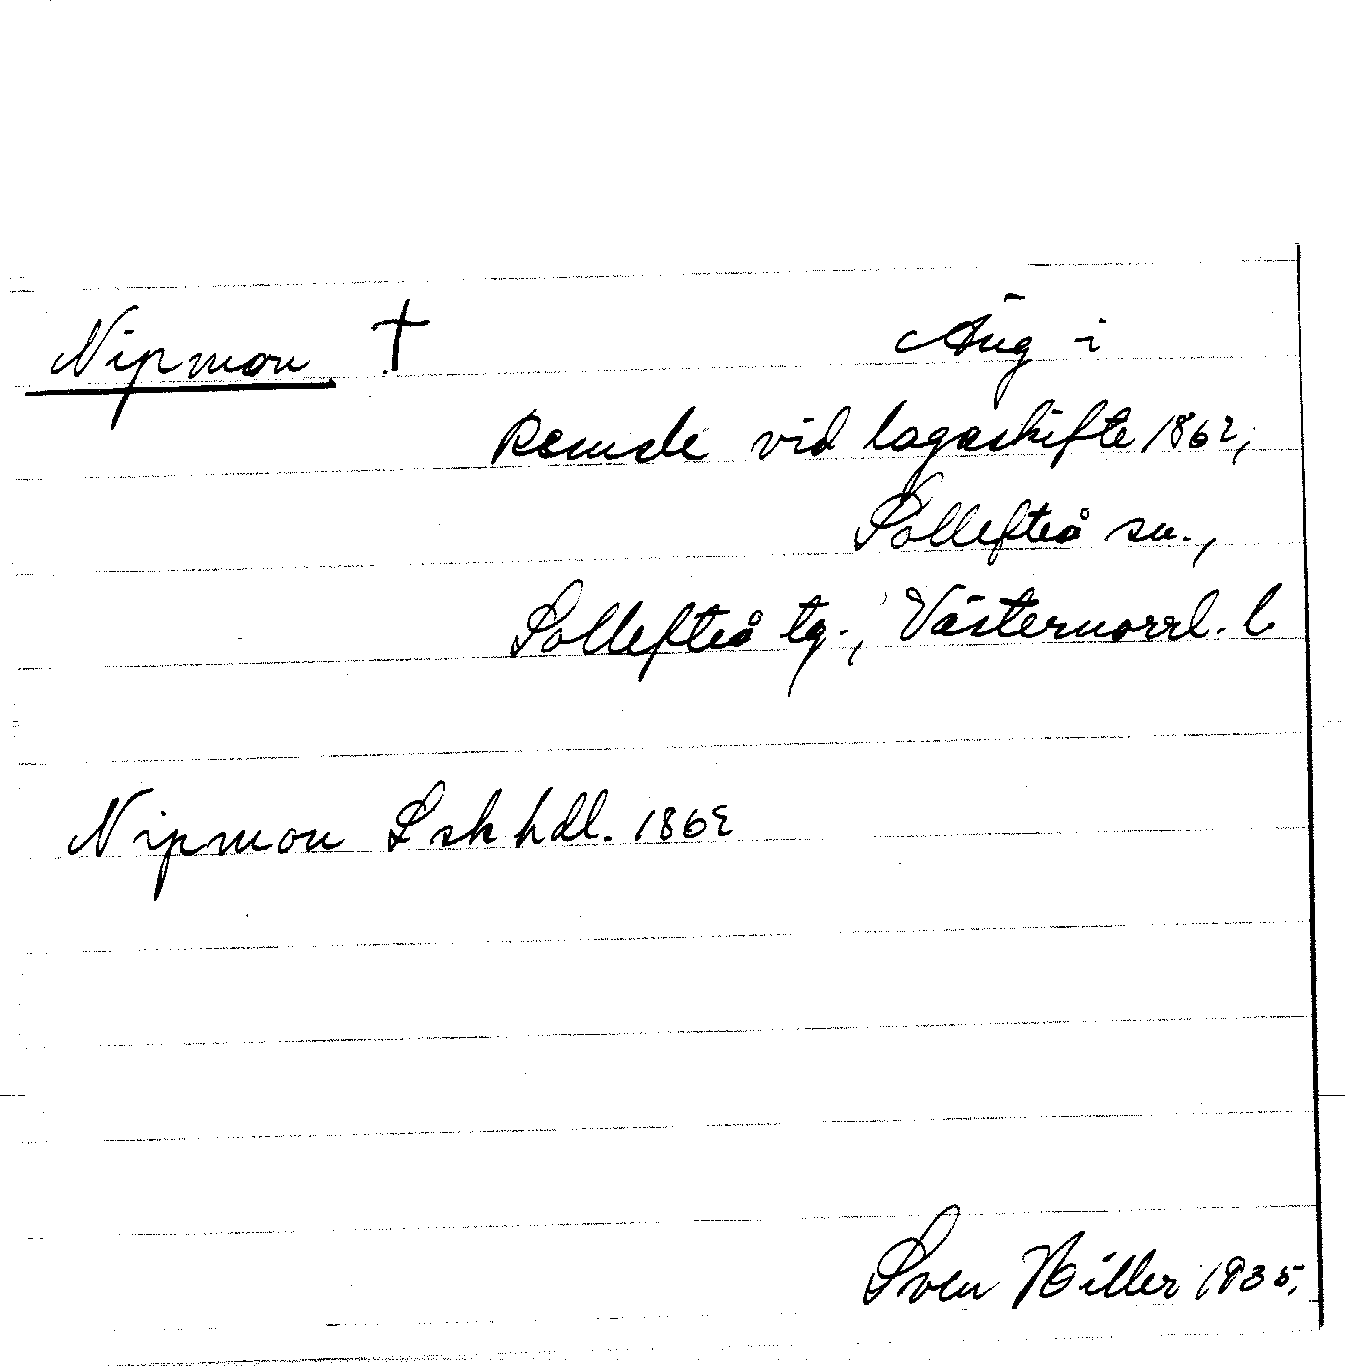 Nipmon † Äng i
Remsle vid lagaskifte 1862,
Sollefteå sn.,
Sollefteå tg., Västernorrl. l
Nipmon Lsk hdl. 1862
Sven Hiller 1935.